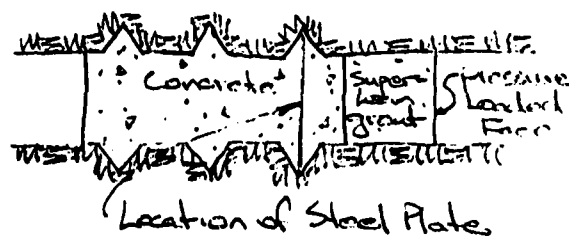 Concrete
Super
Lean
grout
Pressure
Loaded
Face
Location of Steel Plate